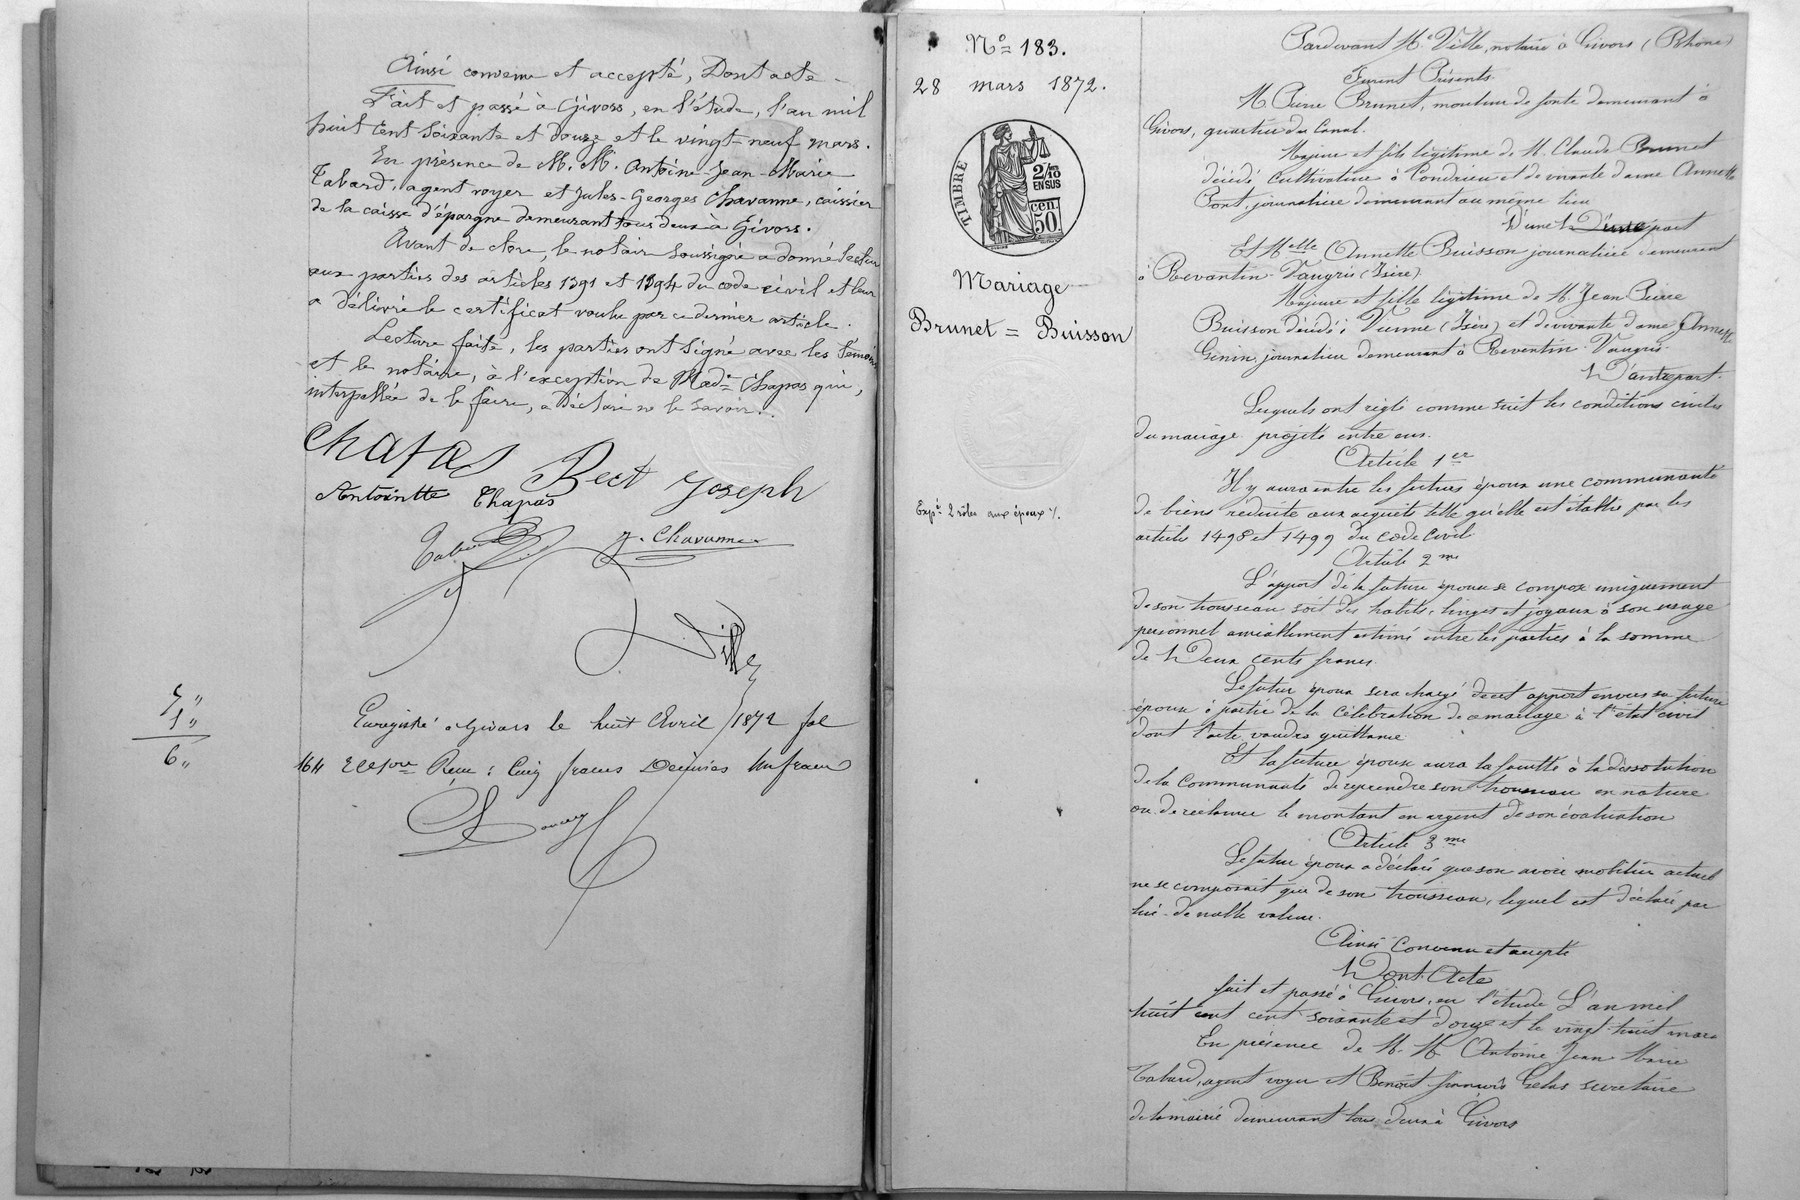 Ainsi convenu et accepté, Dont acte
Fait et passé à Givors, en l'étude, l'an mil
huit cent soixante et douze et le vingt-neuf mars.
En présence de M. M. Antoine-Jean-Marie
Tabard, agent voyer et Jules-Georges Chavanne, caissier
de la caisse d'épargne demeurant tous deux à Givors.
Avant de clore, le notaire soussigné a donné lecture
aux parties des articles 1391 et 1394 du code civil et leur
a délivré le certificat voulu par ce dernier article.
Lecture faite, les parties ont signé avec les témoins
et le notaire, à l'exception de Made Chapas qui,
interpellée de le faire, a déclaré ne le savoir.
Chapas Bect Joseph
Antoinette Chapas
Tabard J. Chavanne
Ville
5 "
1 "
6 "
Enregistré à Givors le huit Avril 1872 fol
164 Reçu : Cinq francs Décimes Un franc
No 183.
28 mars 1872.
TIMBRE
2/10
EN SUS
50 cen.
Mariage
Brunet = Buisson
Expé 2 rôles aux époux
Pardevant Me Ville, notaire à Givors (Rhône)
Furent Présents
M. Pierre Brunet, mouleur de fonte demeurant à
Givors, quartier du Canal.
Majeur et fils légitime de M. Claude Brunet
décédé cultivateur à Condrieu et de vivante dame Annette
Pont, journalière demeurant au même lieu
D'une part
Et Melle Annette Buisson journalière demeurant
à Revantin-Vaugris (Isère)
Majeure et fille légitime de M. Jean Pierre
Buisson décédé à Vienne (Isère) et de vivante dame Annette
Genin, journalière demeurant à Reventin-Vaugris.
D'autre part.
Lesquels ont réglé comme suit les conditions civiles
du mariage projeté entre eux.
Article 1er
Il y aura entre les futurs époux une communauté
de biens réduite aux acquêts telle qu'elle est établie par les
articles 1498 et 1499 du code civil
Article 2me
L'apport de la future épouse se compose uniquement
de son trousseau soit des habits, linges et joyaux à son usage
personnel amiablement estimé entre les parties à la somme
de Deux cents francs
Le futur époux sera chargé de cet apport envers sa future
épouse à partir de la célébration du mariage à l'état civil
dont l'acte vaudra quittance
Et la future épouse aura la faculté à la dissolution
de la communauté de reprendre son trousseau en nature
ou de réclamer le montant en argent de son évaluation
Article 3me
Le futur époux a déclaré que son avoir mobilier actuel
ne se composait que de son trousseau, lequel est déclaré par
lui de nulle valeur.
Ainsi convenu et accepté
Dont Acte
fait et passé à Givors, en l'étude L'an mil
huit cent cent soixante et douze et le vingt huit mars
En présence de M. M. Antoine Jean Marie
Tabard, agent voyer et Benoît François Gelas secrétaire
de la mairie demeurant tous deux à Givors